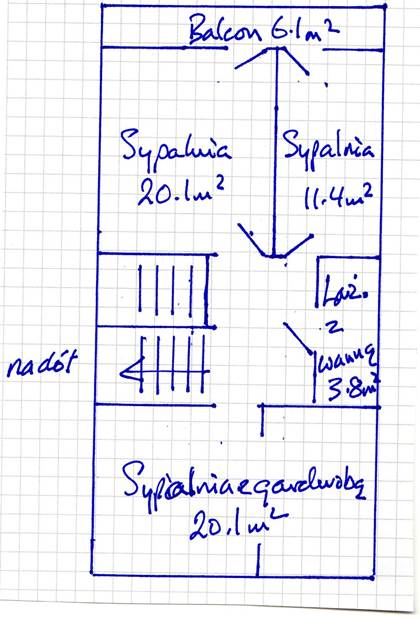 Balcon 6.1m²
Sypalnia
20.1m²
Sypalnia
11.4m²
Łaź.
z
wanną
3.8m²
na dół
Sypialnia z garderobą
20.1m²